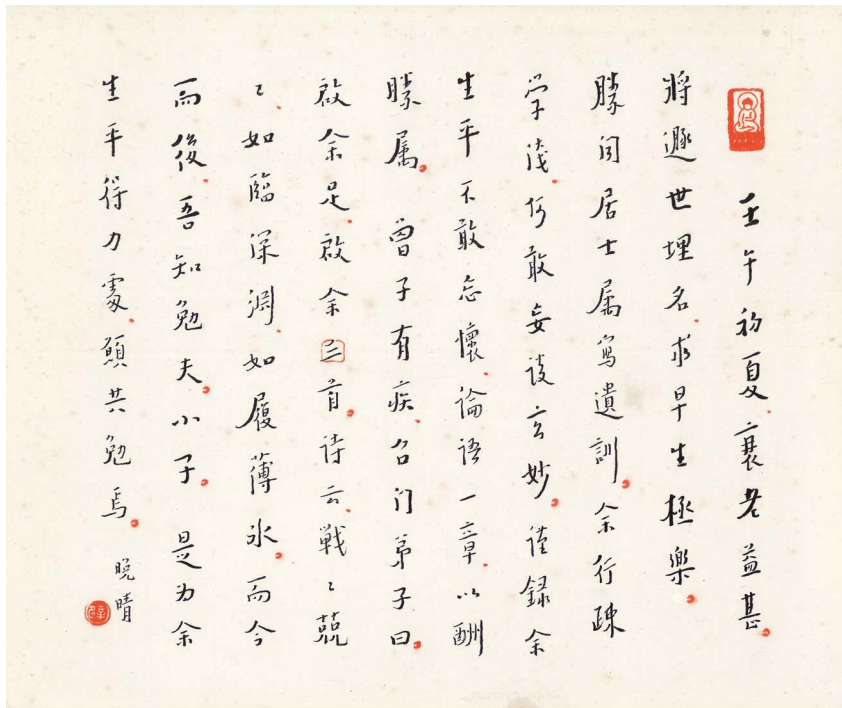 壬午初夏衰老益甚
將遯世埋名求早生極樂
勝聞居士屬寫遺訓余行疎
学淺何敢妄談玄妙謹録余
生平不敢忘懷論语一章以酬
勝属曾子有疾召门弟子曰
啟余足啟余三首诗云戦〻兢
〻如臨深渊如履薄冰而今
而後吾知勉夫小子是为余
生平得力處願共勉焉
晚晴